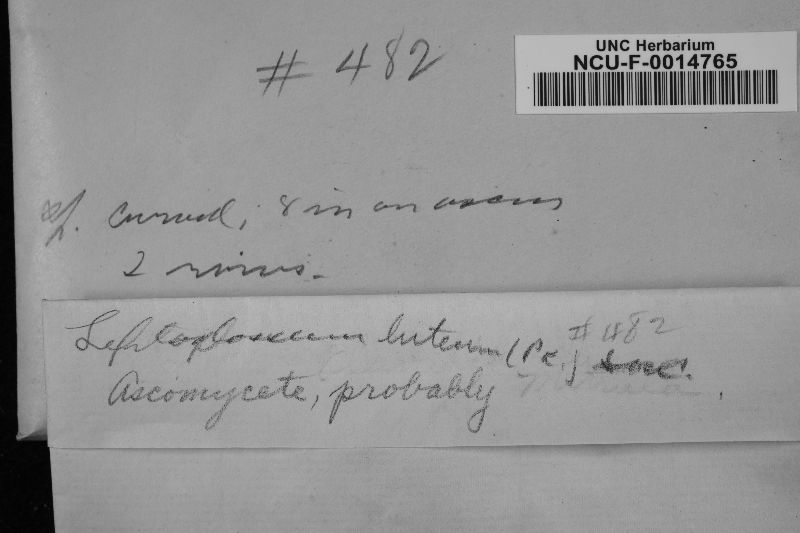 # 482
UNC Herbarium
NCU-F-0014765
sp. curved; 8 in an ascus
2 rows.
Leptoglossum luteum (Pk.) Sacc.
# 482
Ascomycete, probably